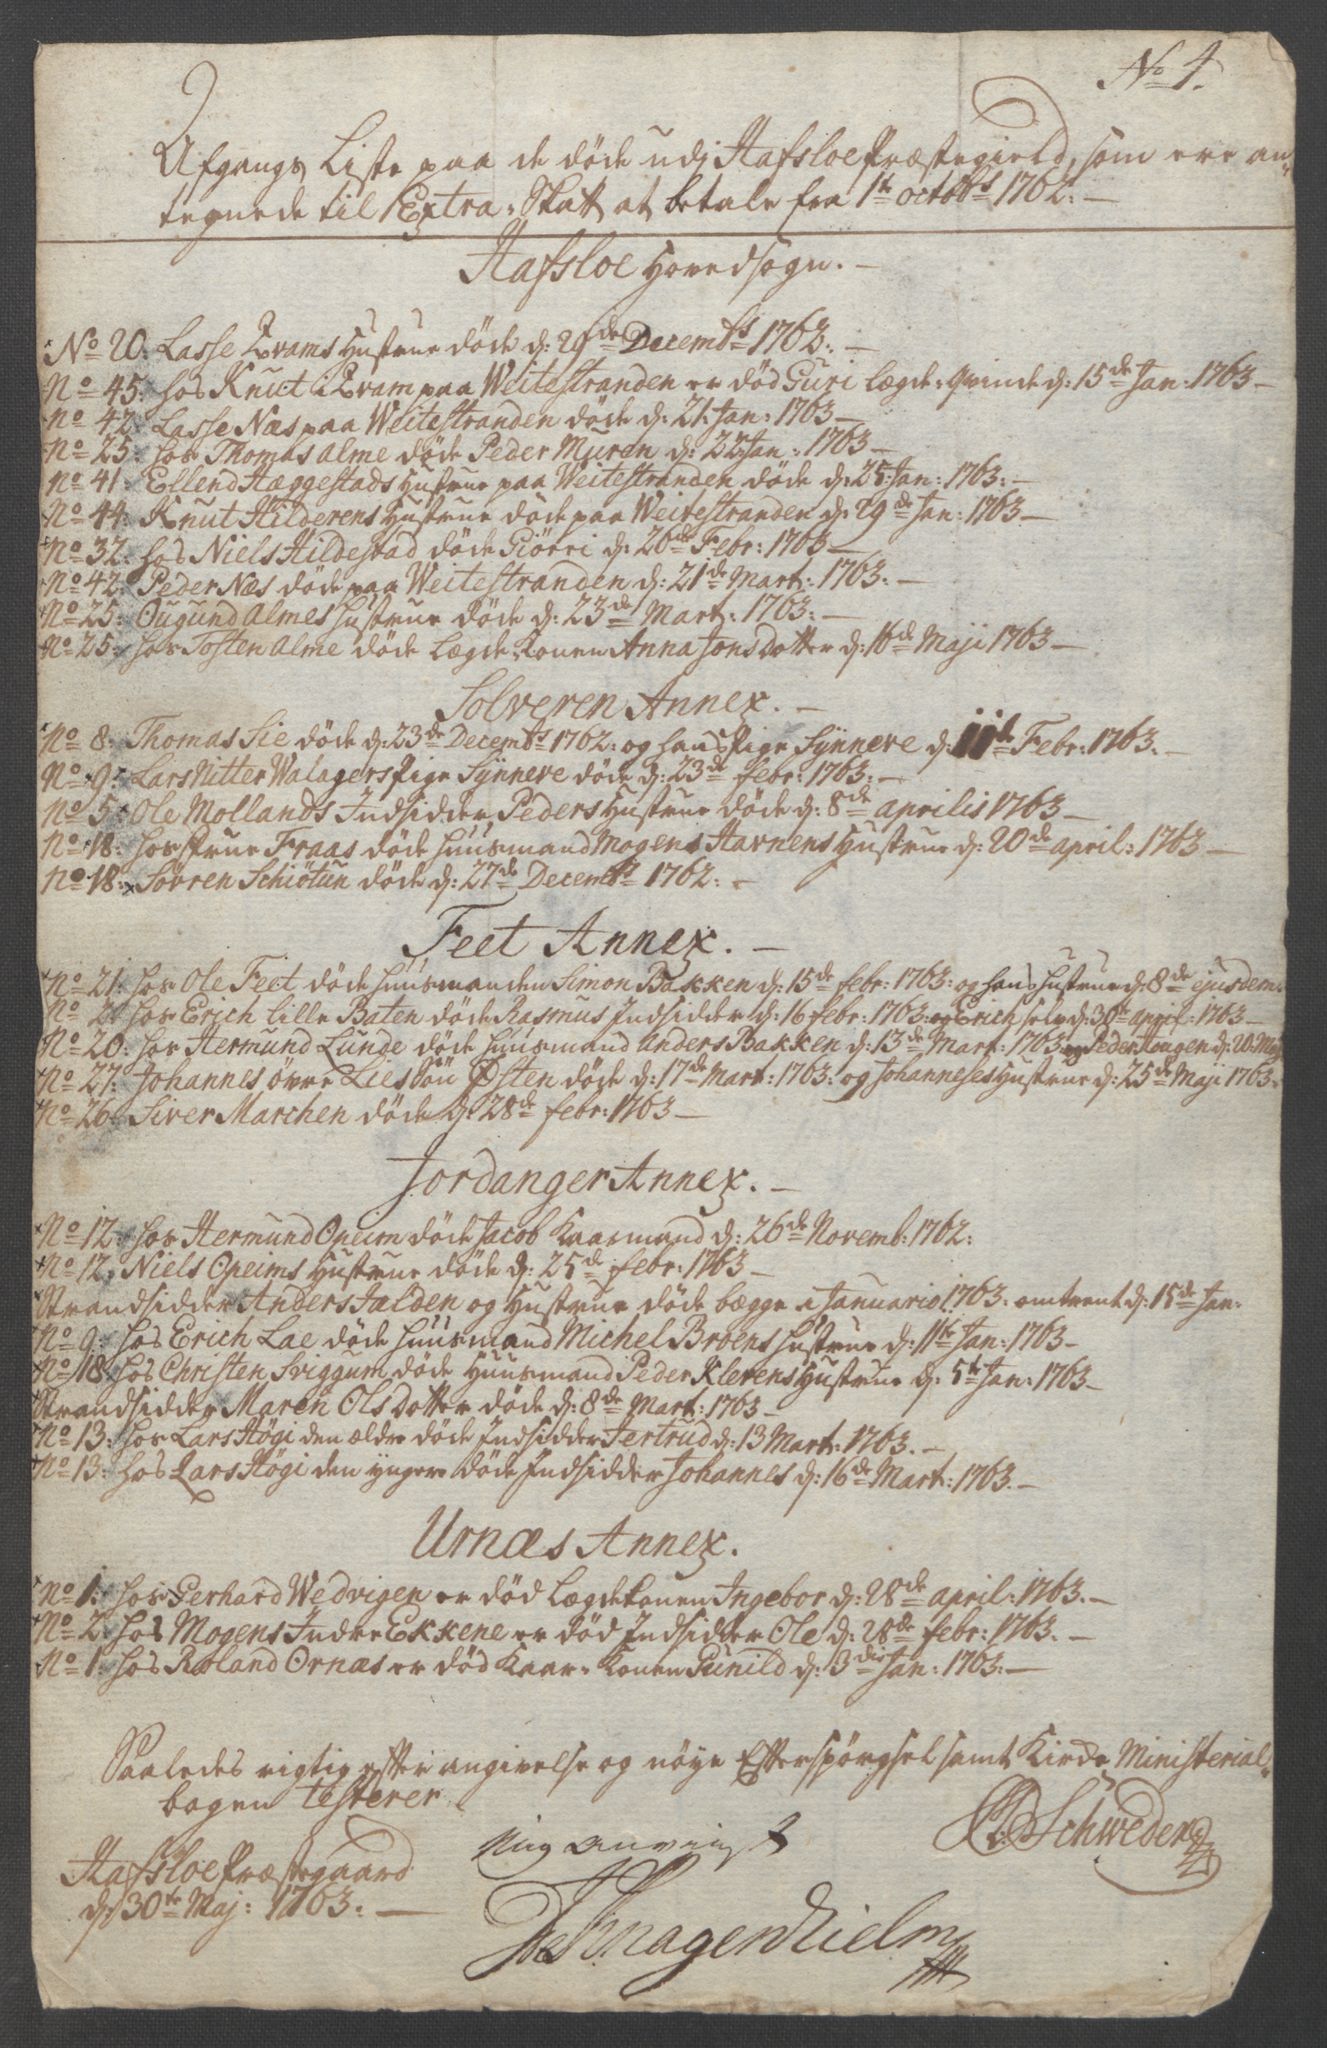 No 4.
Afgangs Liste paa de døde udj Hafsloe Præstegield, som ere an-
tegnede til Extra-Skatt at betale fra 1te octobs 1762. —
Hafsloe Hovedsogn. —
No 20: Lasse Kvams Hustrue døde d: 29de Decembs 1762. —
No 45: hos Knut Kvam paa Weitestranden er død Guri Lægds-Qvinde d: 15de Jan: 1763 —
No 42: Lasse Næs paa Weitestranden døde d: 21. Jan: 1763 —
No 25: hos Thomas Alme døde Peder Muren d: 22 Jan: 1763 —
No 41: Ellend Hæggestads Hustrue paa Weitestranden døde d: 25. Jan: 1763: —
No 44: Knut Hilderens Hustrue døde paa Weitestranden d: 29de Jan: 1763 —
No 32: hos Niels Hildestad døde Giörri d: 26de Febr: 1763 —
No 42: Peder Næs døde paa Weitestranden d: 21de Mart: 1763. —
No 25: Ougund Almes Hustrue døde d: 23de Mart: 1763: —
No 25: hos Tosten Alme døde Lægds Konen Anna Jons Dotter d: 16de Maji 1763 —
Solveren Annex. —
No 8: Thomas Sie døde d: 23de Decembs 1762: og hans Pige Synneve d: 11te Febr: 1763. —
No 9: Lars Nitter Walagers Pige Synneve døde d: 23de febr: 1763: —
No 5: Ole Mollands Indsidder Peders Hustrue døde d: 8de aprilis 1763 —
No 18: hos Frue Fraas døde Huusmand Mogens Havnens Hustrue d: 20de april: 1763 —
No 18: Sovren Schiötun døde d: 27de Decembs 1762: —
Feet Annex. —
No 21: hos Ole Feet døde Huusmanden Simon Bakken d: 15de febr: 1763: og hans Hustrue d: 8de ejusdem
No 2: hos Erich lille Baten døde Rasmus Indsidder d: 16 febr: 1763: og Erich selv d: 30te april: 1763 —
No 20: hos Hermund Lunde døde Huusmand Anders Bakken d: 13de Mart: 1763: og Peder Hougen d: 20 Maj
No 27: Johannes øvre Lies Søn Østen døde d: 17de Mart: 1763: og Johanneses Hustrue d: 25de Maji 1763 —
No 26: Siver Marchen døde d: 28de febr: 1763 —
Jordanger Annex. —
No 12: hos Hermund Opeim døde Jacob Kaarmand d: 26de Novemb: 1762:
No 12: Niels Opeims Hustrue døde d: 25de febr: 1763 —
Strandsidder Anders Falden og Hustrue døde bægge i Januario 1763: omtrent d: 15de Jan:
No 9: hos Erich Lae døde Huusmand Michel Broens Hustrue d: 11te Jan: 1763 —
No 18: hos Christen Sviggum døde Huusmand Peder Klerens Hustrue d: 5te Jan: 1763 —
Strandsidder Maren Ols Dotter døde d: 8de Mart: 1763 —
No 13: hos Lars Høgi den ældre døde Indsidder Jertrud d: 13 Mart: 1763. —
No 13: hos Lars Høgi den yngere døde Indsidder Johannes d: 16de Mart: 1763. —
Urnæs Annex.
No 1: hos Gerhard Wedvigen er død Lægdskonen Ingebor d: 28de april: 1763. —
No 2: hos Mogens Indre Ekkene er død Indsidder Ole d: 28de febr: 1763. —
No 1: hos Roland Ornæs er død Kaar-Konen Gunild d: 3die Jan: 1763. —
Saaledes rigtig efter angivelse og nøye Efterspørgsel samt Kirke Ministerial-
bogen testerer
C. Schweder
Mig anviist
Hafsloe Præstegaard
d: 30te Maj: 1763. —
Knagenhielm